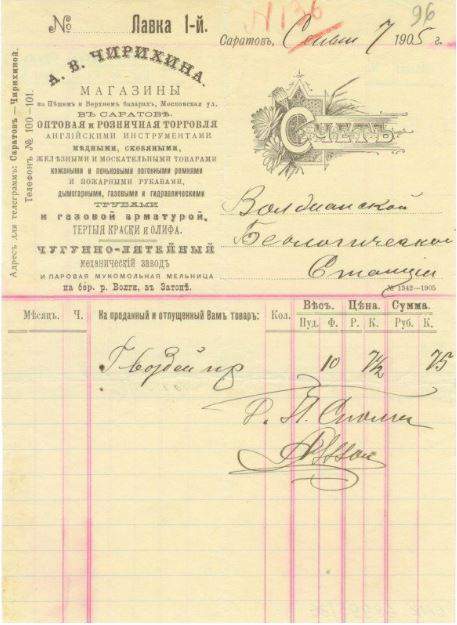 № Лавка 1-й.
N 136
96
Саратовъ, 7 1905 г.
А. В. ЧИРИХИНА.
МАГАЗИНЫ
на Пѣшемъ и Верхнемъ базарахъ, Московская ул.
ВЪ САРАТОВѢ.
ОПТОВАЯ И РОЗНИЧНАЯ ТОРГОВЛЯ
АНГЛІЙСКИМИ ИНСТРУМЕНТАМИ
МѢДНЫМИ, СКОБЯНЫМИ,
ЖЕЛѢЗНЫМИ И МОСКАТЕЛЬНЫМИ ТОВАРАМИ
КОЖАНЫМИ И ПЕНЬКОВЫМИ ПОГОННЫМИ РЕМНЯМИ
И ПОЖАРНЫМИ РУКАВАМИ,
ДЫМОГАРНЫМИ, ГАЗОВЫМИ И ГИДРАВЛИЧЕСКИМИ
ТРУБАМИ
и газовой арматурой,
ТЕРТЫЯ КРАСКИ И ОЛИФА.
ЧУГУННО-ЛИТЕЙНЫЙ
МЕХАНИЧЕСКІЙ ЗАВОДЪ
И ПАРОВАЯ МУКОМОЛЬНАЯ МЕЛЬНИЦА
на бер. р. Волги, въ Затонѣ.
Адресъ для телеграммъ: Саратовъ—Чирихиной.
Телефонъ № 100—101.
Счетъ
Волжской
Біологической
Станціи
№ 1342—1905
Мѣсяцъ. Ч. На проданный и отпущенный Вамъ товаръ: Кол. Вѣсъ. Цѣна. Сумма.
Пуд. Ф. Р. К. Руб. К.
Гвоздей 10 7½ 75